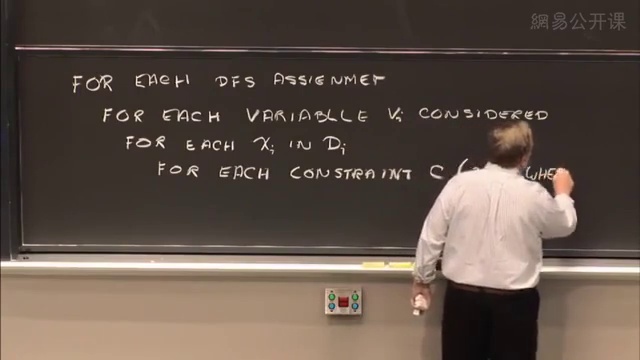 網易公开课
FOR EACH DFS ASSIENMET
FOR EACH VARIABLLE Vi CONSIDERED
FOR EACH Xi IN Di
FOR EACH CONSTRAINT C ( WHE